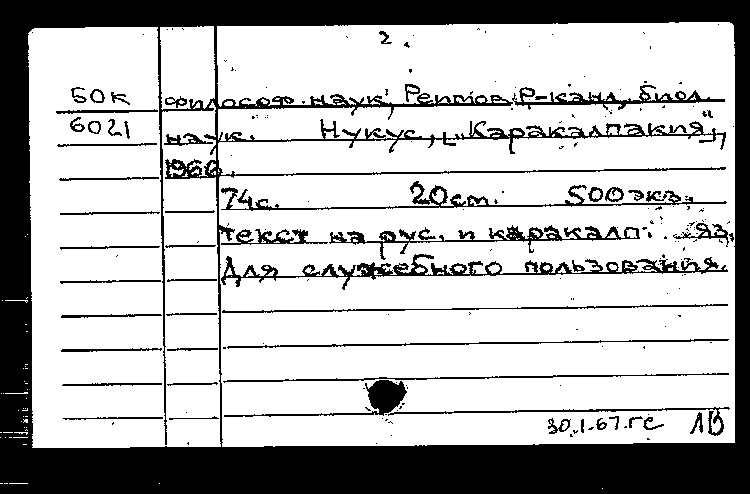 2.
БОК философ. наук, Реипов Р-канд. биол.
6021 наук. Нукус, [„Каракалпакия"],
1966.
74с. 20ст. 500экз.
Текст на рус. и каракалп. яз.
Для служебного пользования.
30.1.67.гс ЛВ